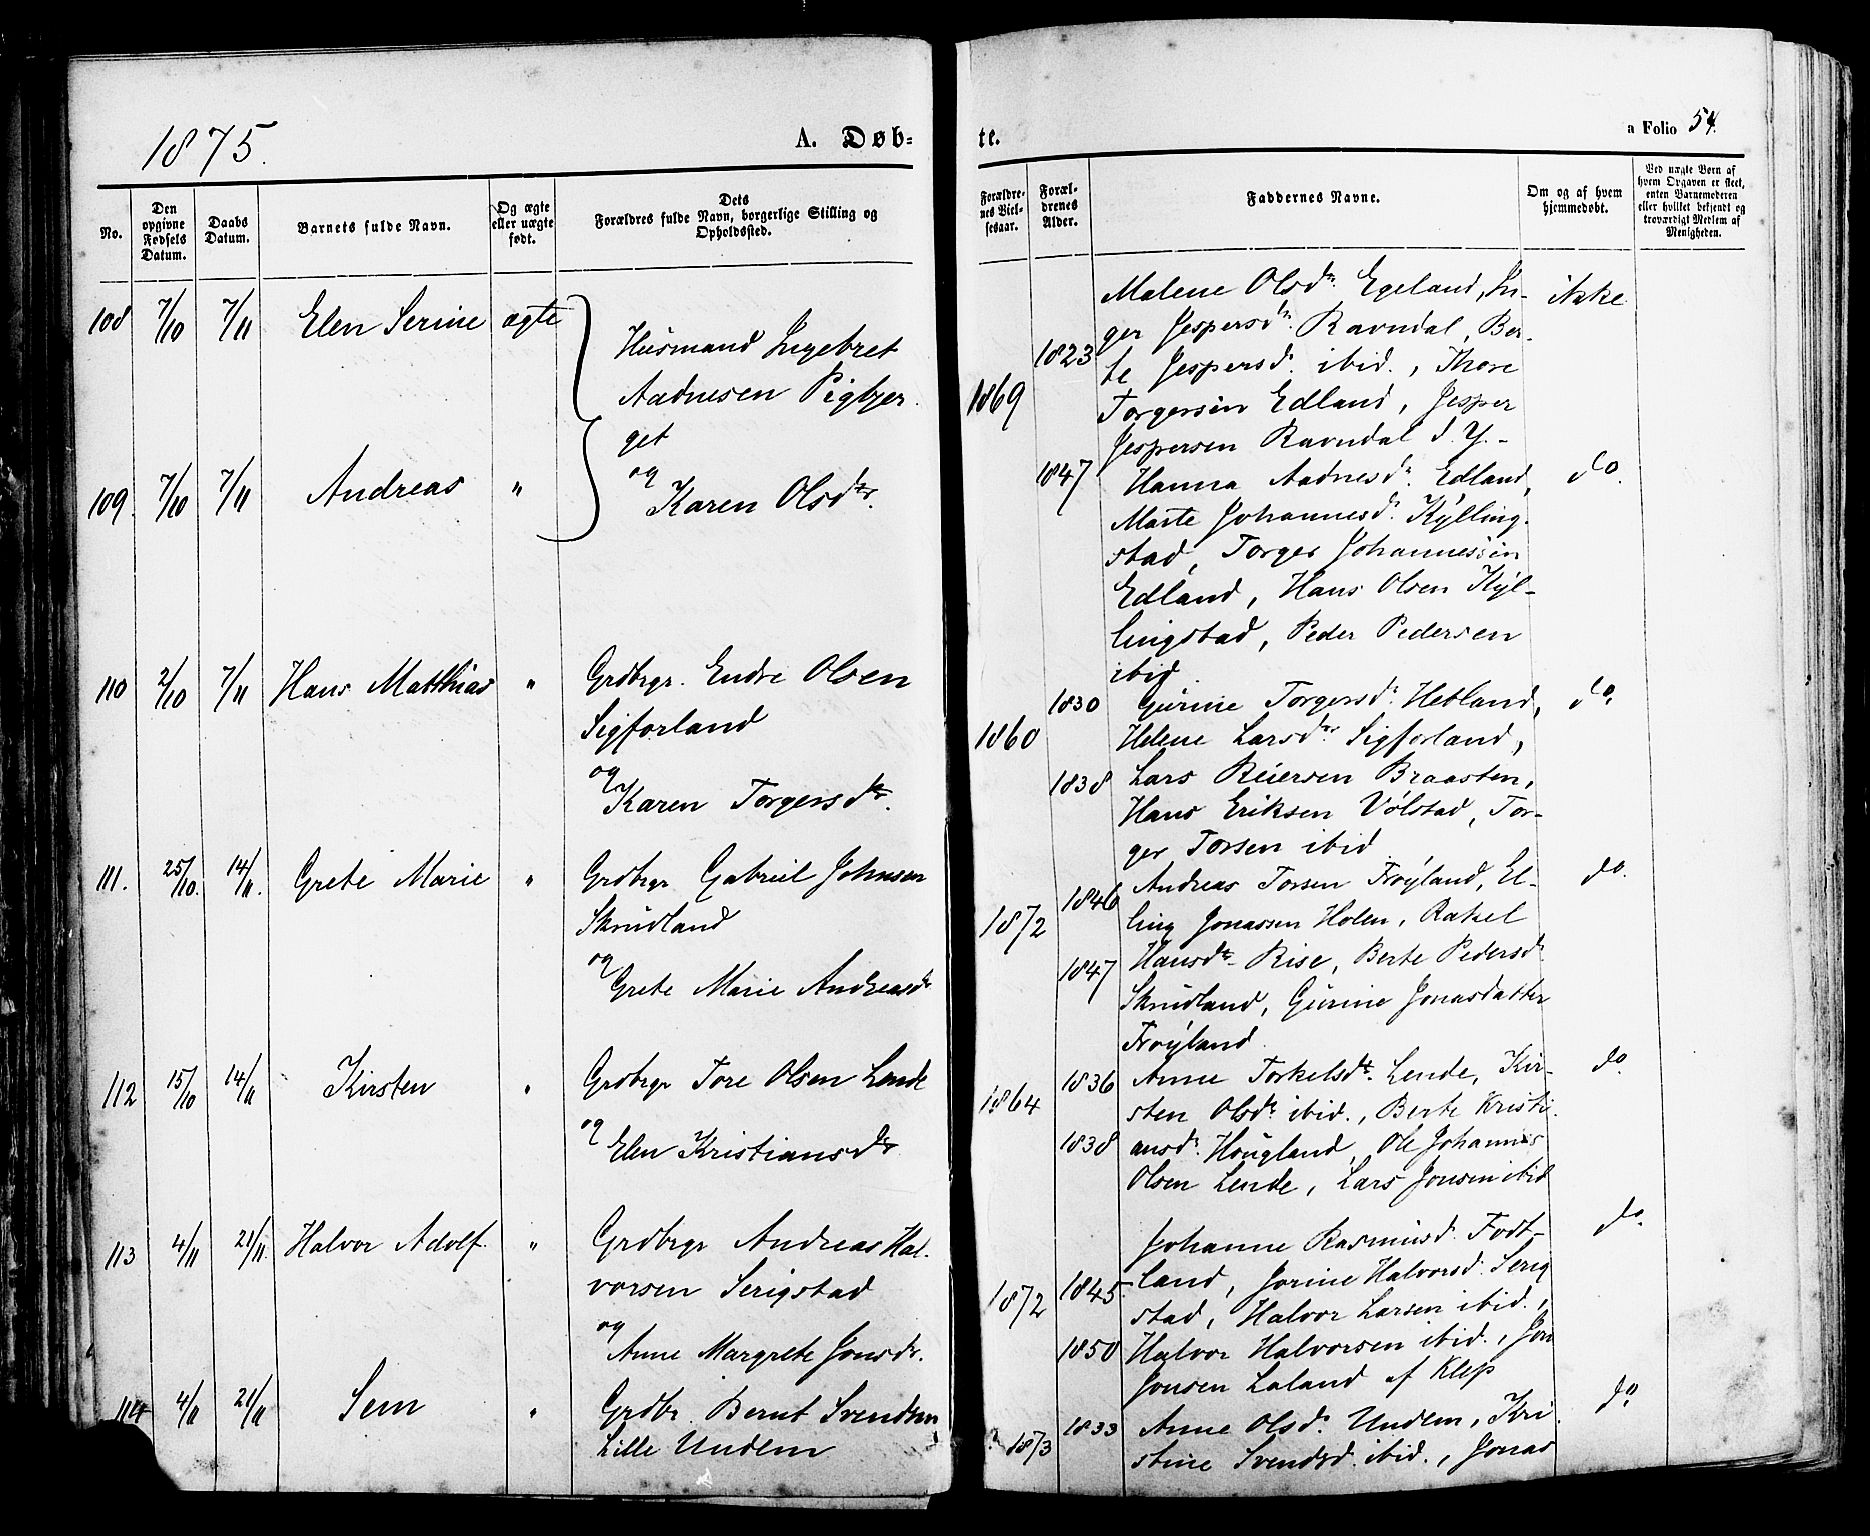 1875.
A. Døb-
te.
a Folio 54.
No.
Den opgivne Fødsels Datum.
Daabs Datum.
Barnets fulde Navn.
Og ægte eller uægte født.
Dets Forældres fulde Navn, borgerlige Stilling og Opholdssted.
Forældrenes Vielsesaar.
Forældrenes Alder.
Faddernes Navne.
Om og af hvem hjemmedøbt.
Ved uægte Børn af hvem Opgaven er skeet, enten Barnemoderen eller hvilket bekjendt og troværdigt Medlem af Menigheden.
108 7/10 7/11 Elen Serine ægte
Husmand Ingebret
Aadnesen Pigbjer-
get
og
Karen Olsdtr.
1869
1823
Malene Olsdtr. Egeland, In-
ger Jespersdtr. Ravndal, Ber-
te Jespersd. ibid., Thore
Torgersen Edland, Jesper
Jespersen Ravndal d. Y. -
ikke
109. 7/10 7/11 Andreas "
1847
Hanna Aadnesdr. Edland,
Marte Johannesdr. Kylling-
stad, Torger Johannessen
Edland, Hans Olsen Kyl-
lingstad, Peder Pedersen
ibid
do.
110 2/10 7/11 Hans Matthias "
Grdbrgr. Endre Olsen
Sigforland
og
Karen Torgersdtr.
1860
1830
1838
Gurine Torgersdr. Hetland,
Helene Larsdtr. Sigforland,
Lars Reiersen Braasten,
Hans Eriksen Vølstad, Tor-
ger Torsen ibid
do.
111. 25/10. 14/11. Grete Marie "
Grdbrgr Gabriel Johnsen
Skrudland
og
Grete Marie Andreasdtr
1872
1846
1847
Andreas Torsen Frøyland, El-
ling Jonassen Holen, Rakel
Hansdtr. Rise, Berte Pedersdr
Skrudland, Gurine Jonasdatter
Frøyland.
do.
112 15/10 14/11 Kirsten "
Grdbrgr Tore Olsen Lende
og
Elen Kristiansdtr
1864
1836
1838
Anne Torkelsdtr. Lende, Kir-
sten Olsdr. ibid., Berte Kristi-
ansdr. Hougland, Ole Johannes
Olsen Lende, Lars Jonsen ibid
do.
113 4/11 21/11. Halvor Adolf. "
Grdbrgr Andreas Hal-
vorsen Serigstad
og
Anne Margrete Jonsdr.
1872
1845.
1850
Johanne Rasmusd. Fodt-
land, Jorine Halvorsd. Serig
stad, Halvor Larsen ibid.,
Halvor Halvorsen ibid., Jon
Jonsen Laland af Klep
do.
114 4/11 21/11 Sem "
Grdbr. Bernt Svendsen
Lille Undem
1873
1833
Anne Olsdr. Undem, Kri
stine Svendsd. ibid., Jonas
do.